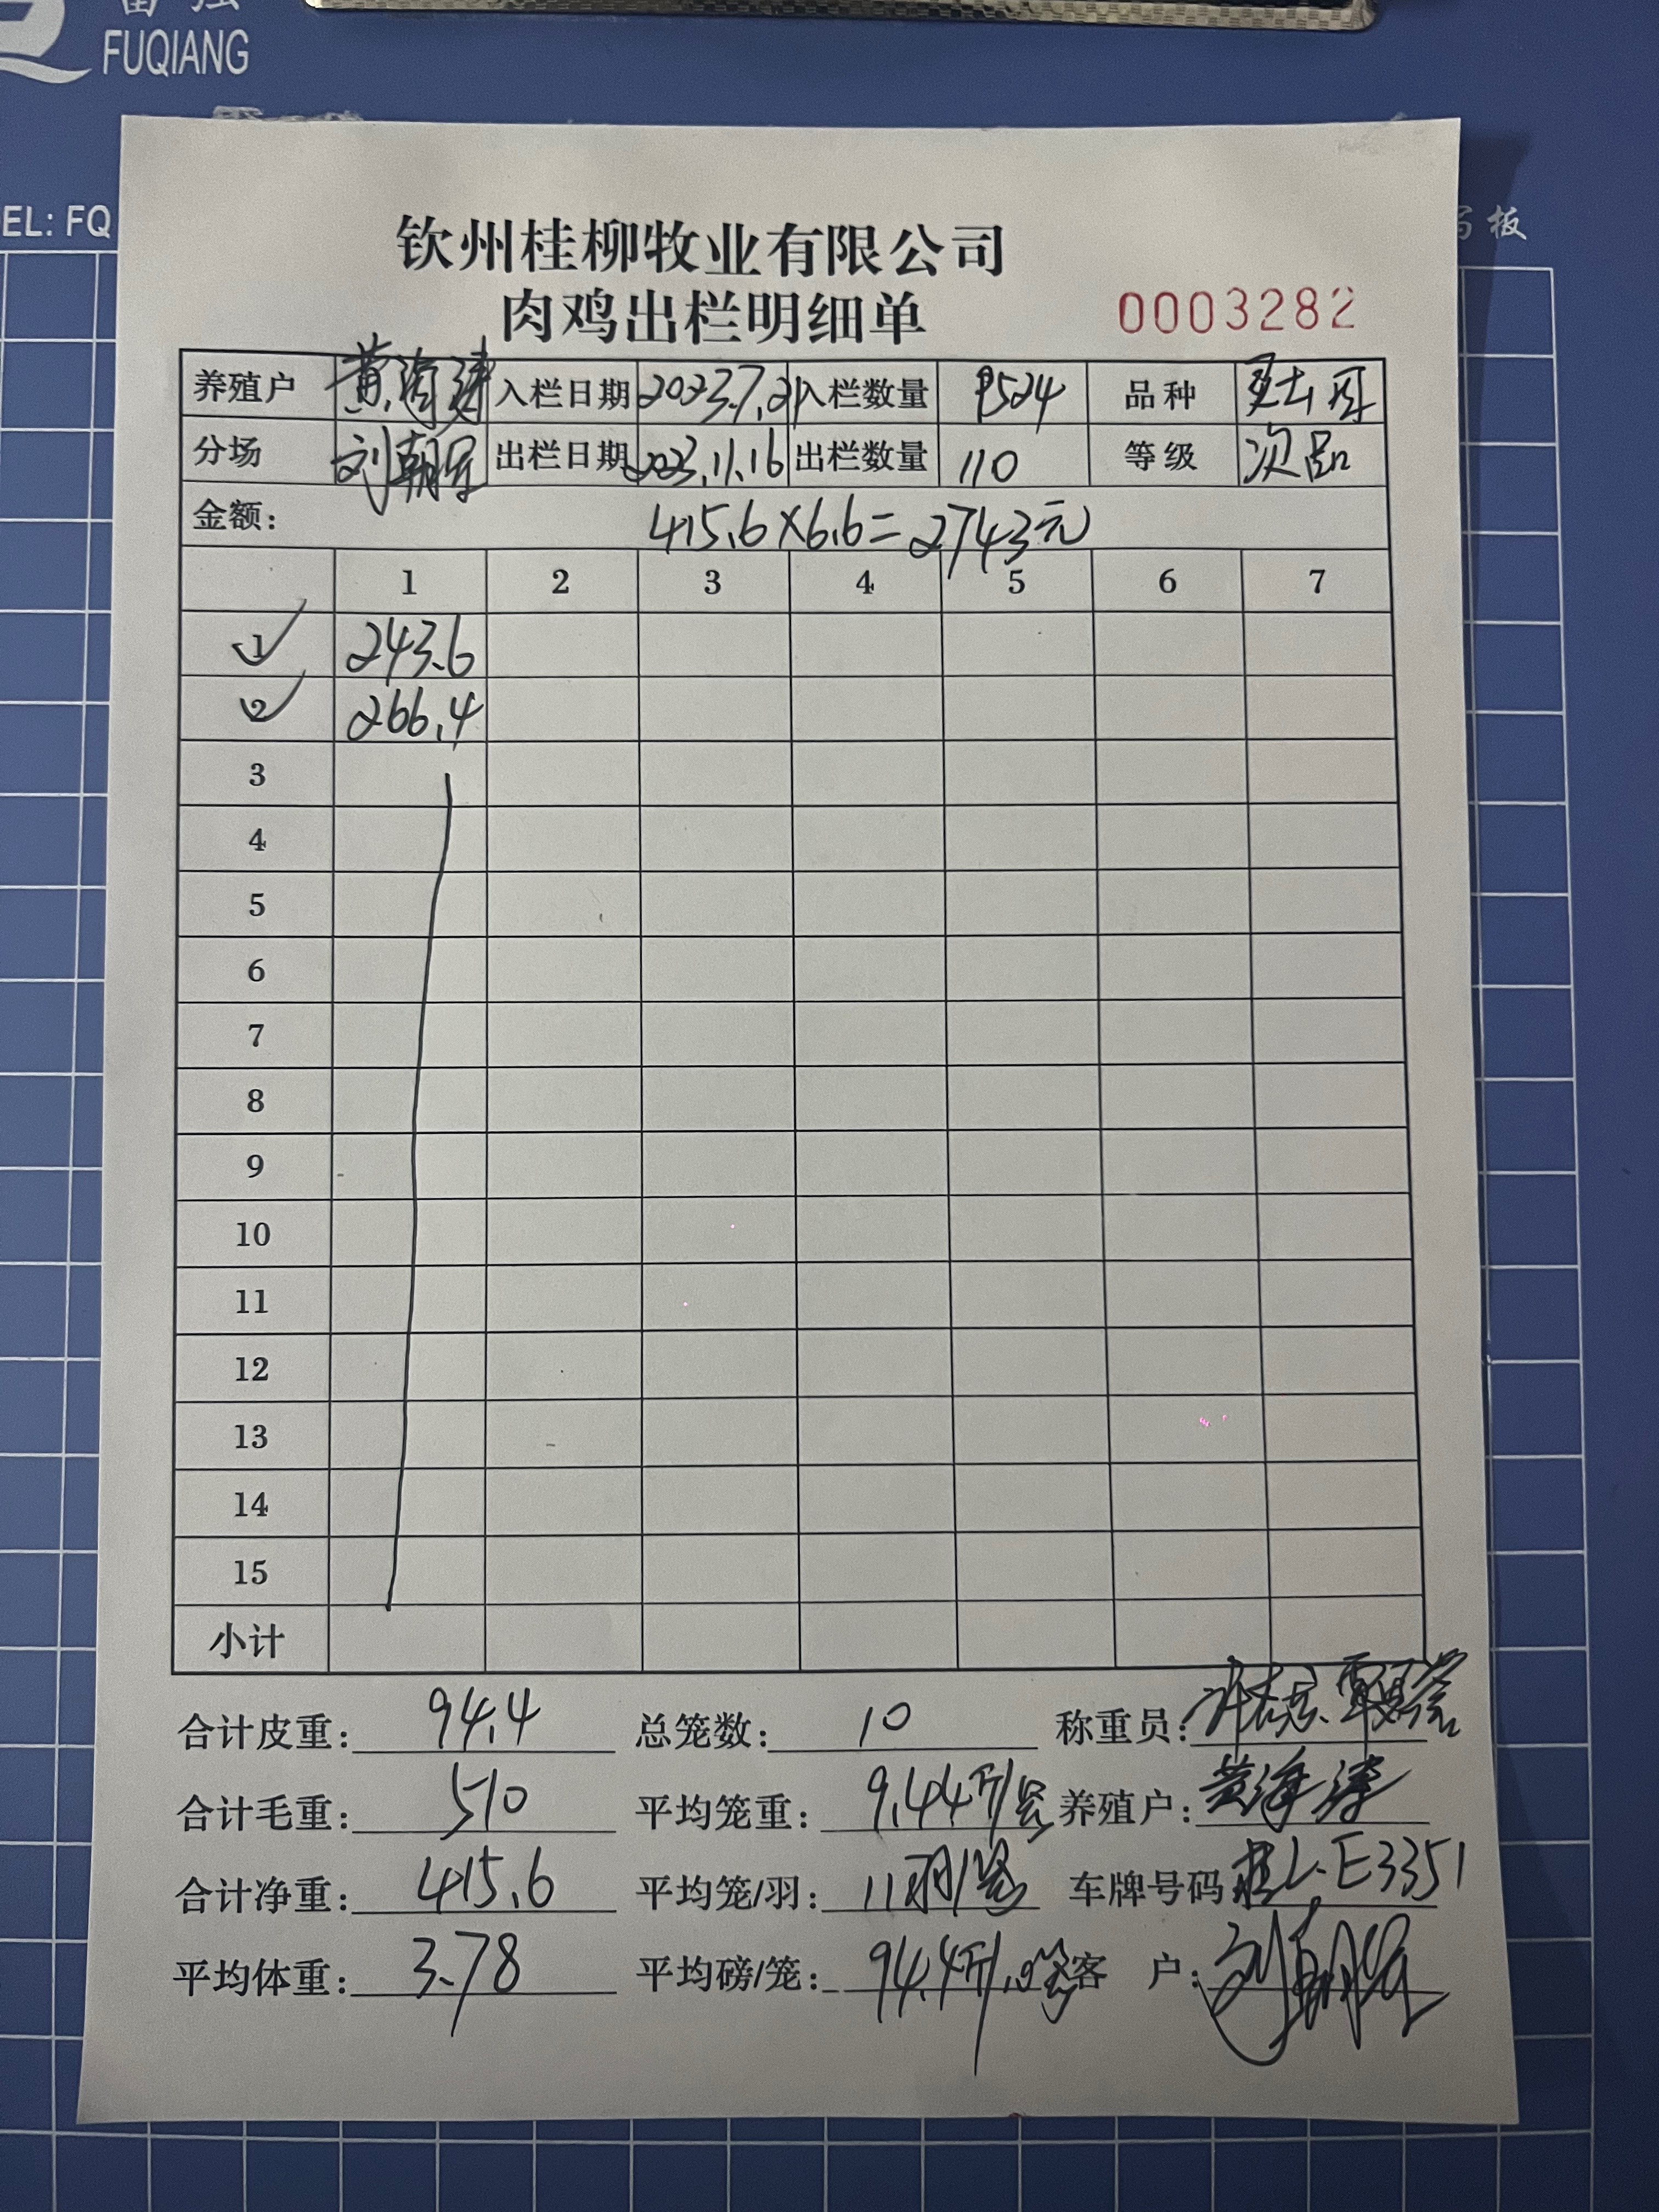 富强
FUQIANG
EL: FQ
写板
钦州桂柳牧业有限公司
肉鸡出栏明细单 0003282
养殖户 黄海涛 入栏日期 2023.7.21 入栏数量 9524 品种
分场 刘朝 出栏日期 2023.11.16 出栏数量 110 等级 次品
金额: 415.6×6.6=2743元
1 2 3 4 5 6 7
1 243.6
2 266.4
3
4
5
6
7
8
9
10
11
12
13
14
15
小计
合计皮重: 94.4 总笼数: 10 称重员:
合计毛重: 510 平均笼重: 9.44斤/笼 养殖户: 黄海涛
合计净重: 415.6 平均笼/羽: 11羽/笼 车牌号码 桂L·E3351
平均体重: 3.78 平均磅/笼: 94.4斤/ 客 户: